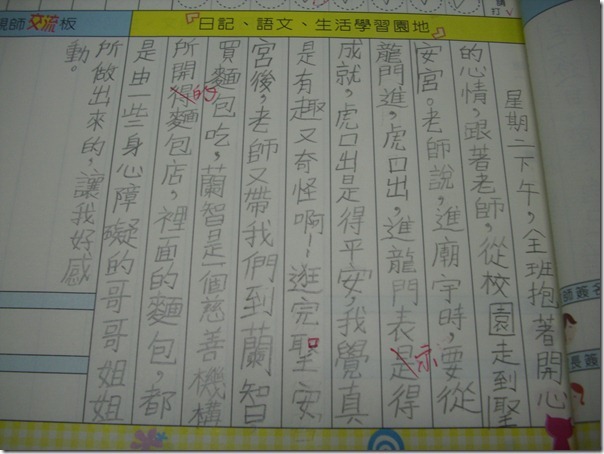 請
打
『日記、語文、生活學習園地』
親師交流板
師簽名
長簽
星期二下午,全班抱著開心
的心情,跟著老師,從校園走到聖
安宮。老師說,進廟宇時,要從
龍門進,虎口出,進龍門表是示得
成就,虎口出是得平安,我覺真
是有趣又奇怪啊!逛完聖安
宮後,老師又帶我們到蘭智,
買麵包吃,蘭智是一個慈善機構
所開得的麵包店,裡面的麵包,都
是由一些身心障礙的哥哥姐姐
所做出來的,讓我好感
動。